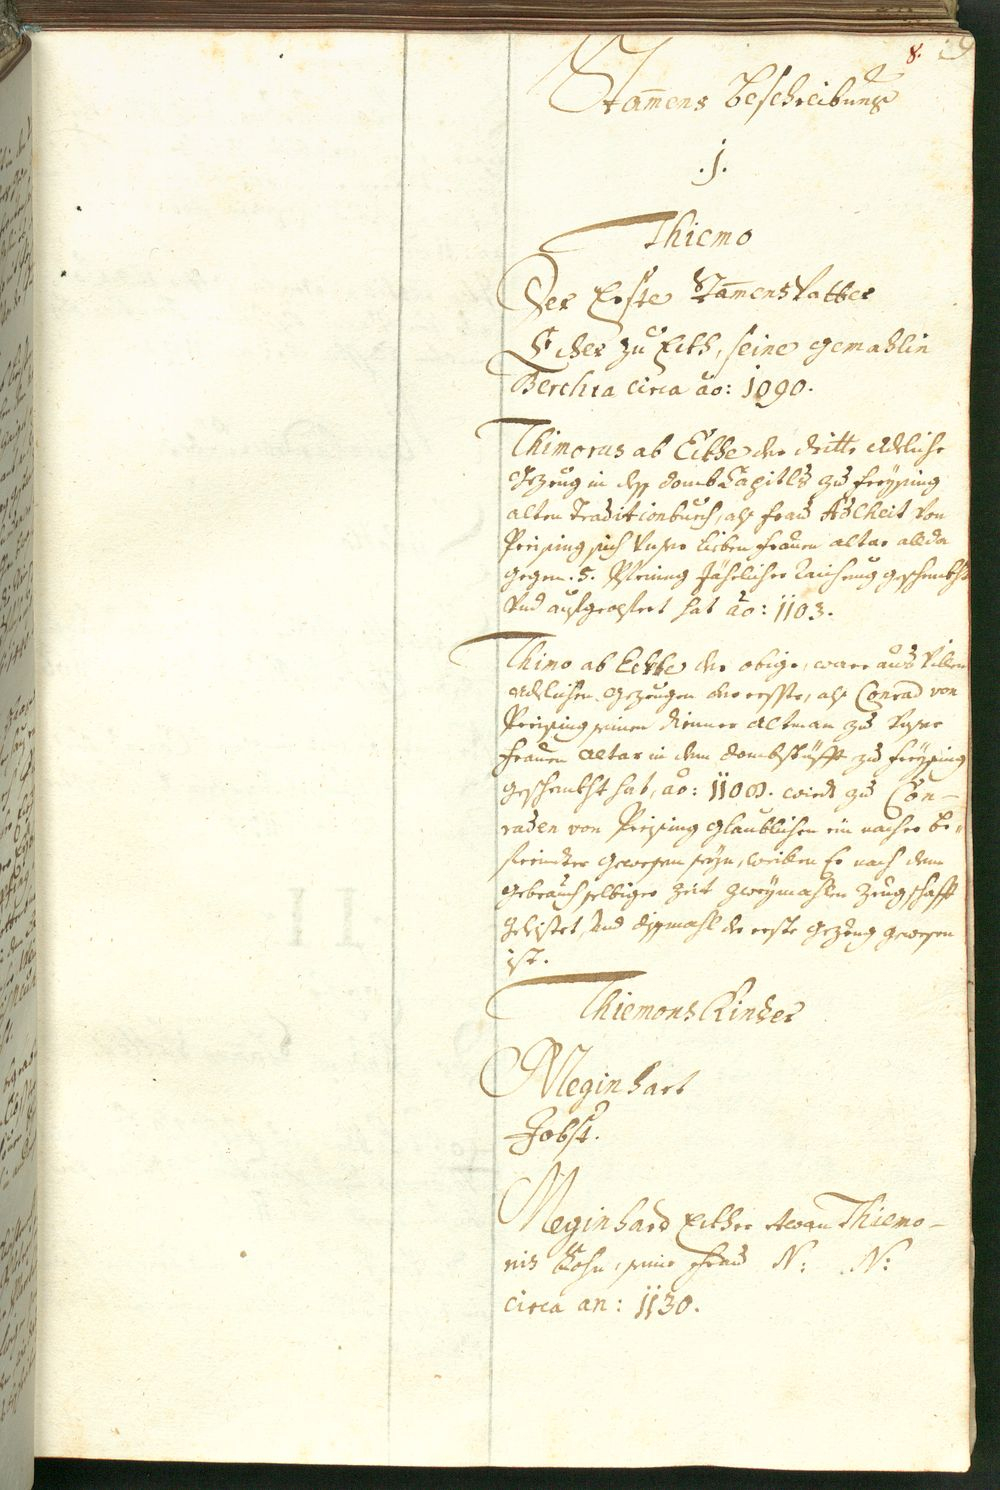 8. 9
Stam̅ens Beschreibung
.j.
Thiemo
Der Erste Stam̅ens Vatter
Ecker zu Eith, seine gemahlin
Berchta circa ao: 1090.
Thimorus ab Eithe der dritte Adeliche
Gezeug in deß domb Capitls zu Freysing
alten Traditionbuch, als Frau Adlheit von
Preising sich Unser lieben Frauen altar allda
gegen .5. Pfening Jährlicher Raichung geschenkht
Und aufgeopfert hat ao: 1103.
Thimo ab Eckhe der obige, ware aus Villen
Adelichen gezeugen der erste, als Conrad von
Preising seinen diener Altman zu Unser
Frauen Altar in dem dombstüfft zu Freysing
geschenkht hat, ao: 1108. wirdt zu Con-
raden von Preising glaublichen ein naher be-
freindter gewesen seyn, weillen Er nach dem
gebrauch selbiger Zeit zweymahlen Zeugschafft
gelaistet, Und dissmahl der erste gezeug gewesen
ist.
Thiemons Kinder
Meginhart
Jobst.
Meginhard Eckher Thiemo-
nis Sohn, seine Frau N: N:
circa an: 1130.